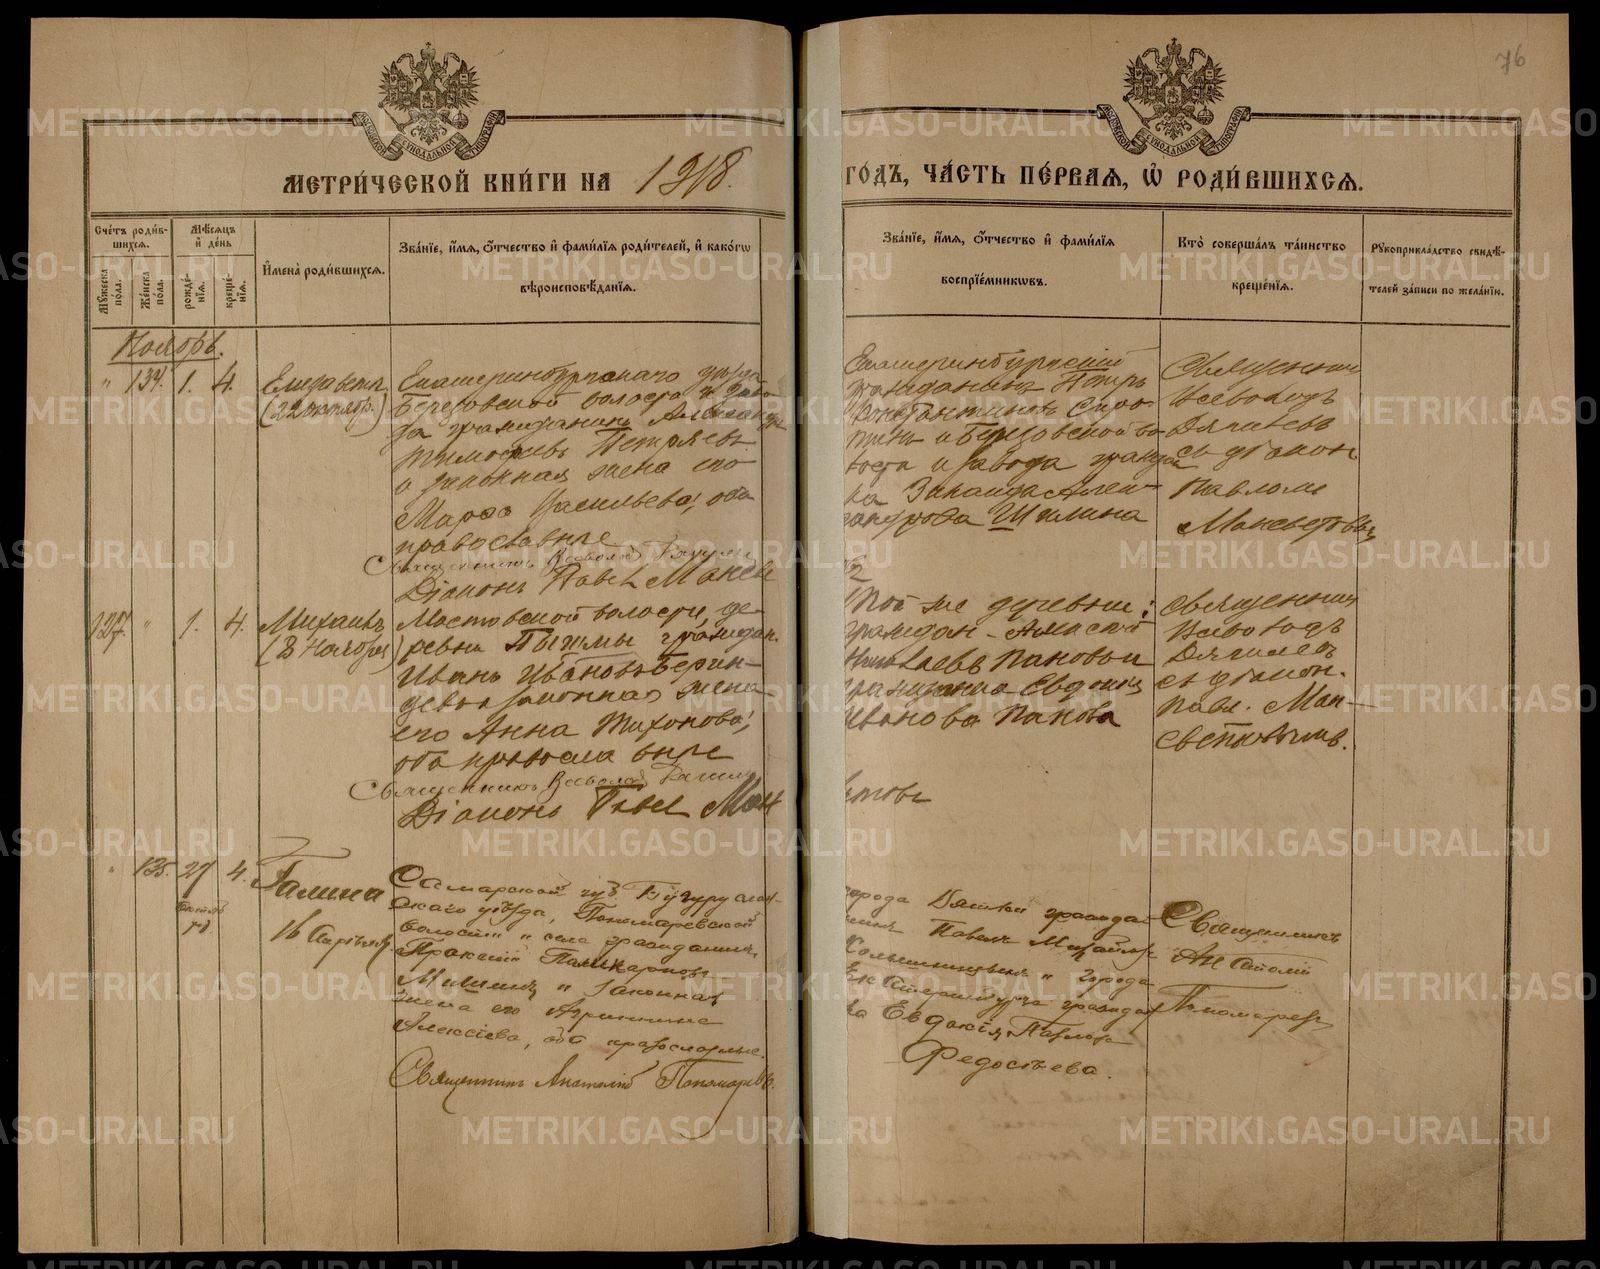 76
МЕТРИ́ЧЕСКОЙ КНИ́ГИ НА 1918.
ГО́ДЪ, ЧА́СТЬ ПЕ́РВАЯ, Ѽ РОДИ́ВШИХСЯ.
Сче́тъ роди́в-
шихся.
Мꙋ́жеска по́ла.
Же́нска по́ла.
Мѣ́сяцъ
и҆ де́нь
рожде́-
нїя.
креще́-
нїя.
И҆мена̀ роди́вшихся.
Зва́нїе, и҆́мя, ѻ҆́тчество и҆ фами́лїя роди́телей, и҆ како́гѡ
вѣроисповѣ́данїя.
Зва́нїе, и҆́мя, ѻ҆́тчество и҆ фами́лїя
воспрїе́мникѡвъ.
Кто̀ соверша́лъ та́инство
креще́нїя.
Рꙋкоприкла́дство свидѣ́-
телей за́писи по жела́нїю.
Ноябрь.
" 134. 1. 4.
Елизавета
(22 октябр.)
Екатеринбургскаго уѣзда
Березовской волости и заво-
да гражданинъ Александръ
Тимофеевъ Петряевъ
и законная жена его
Марѳа Васильева, оба
православные
Священникъ Всеволодъ
Діаконъ Павелъ Мансве
Екатеринбургскій
гражданинъ Петръ
Константиновъ Скро-
и Березовской во-
лости и завода граждан
ка Зинаида Алек-
сандрова Шилина
Священник
Всеволодъ
Дягилевъ
съ діакон
Павломъ
Мансветовым
127. " 1. 4.
Михаилъ
(8 Ноября)
Мостовской волости, де-
ревни Пышмы граждан.
Иванъ Ивановъ Берин-
цевъ и законная жена
его Анна Тихонова,
оба православные
Священникъ Всеволод
Діаконъ Павелъ Ман
Той же деревни:
граждан. Алексѣй
Николаевъ Пановъ и
гражданка Евдокия
Иванова Панова
Священник
Всеволодъ
Дягилевъ
съ діакон.
Павл. Ман-
световымъ.
" 135. 27 4.
Октяб
ря
Галина
16 Апрѣля
Самарской губ. Бугуруслан-
скаго уѣзда, Пономаревской
волости и села гражданинъ
Поликарповъ
и законная
жена его Агриппина
Алексѣева, оба православные.
Священникъ Анатолій Пономаревъ.
города Вятки гражда-
нинъ Павелъ Михайлов
и города
Екатеринбурга граждан
ка Евдокія Павлова
Федосѣева.
Священникъ
Анатолій
Пономаревъ
METRIKI.GASO-URAL.RU